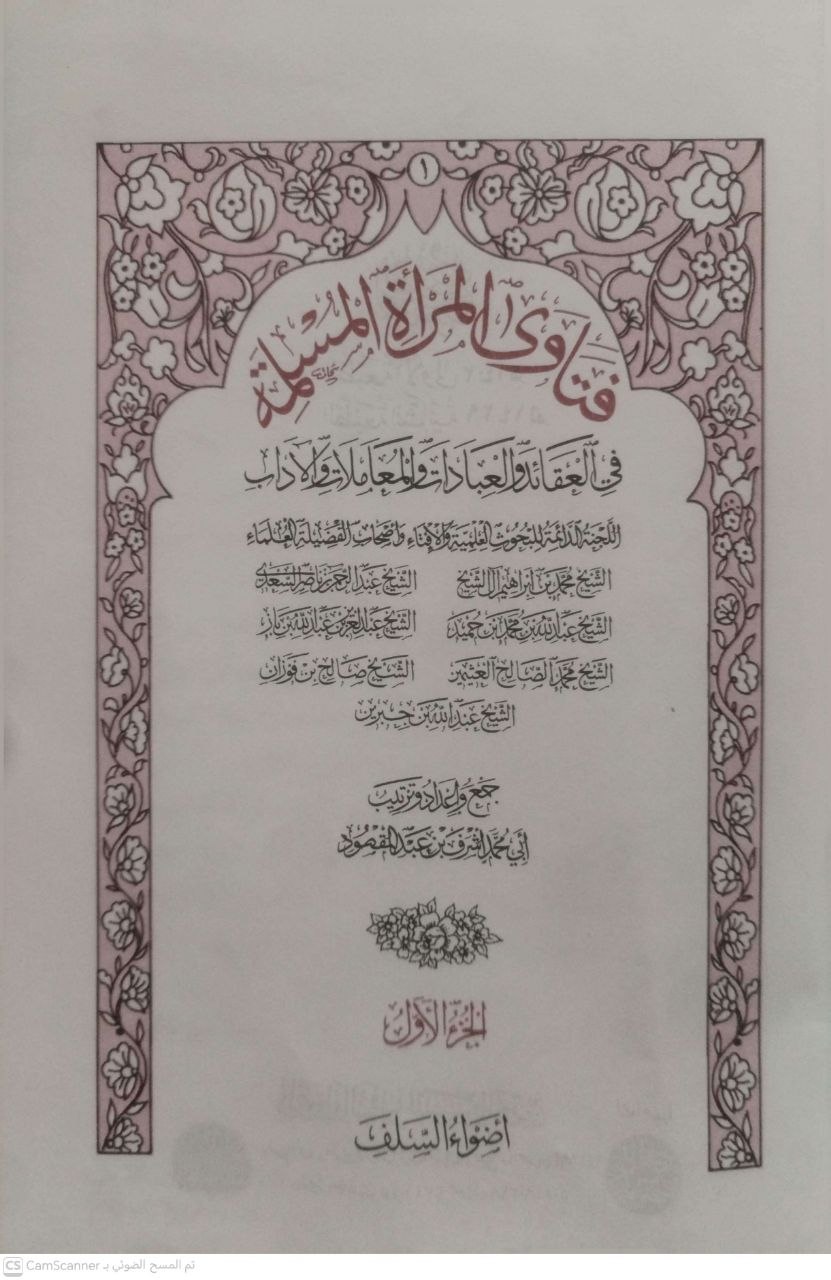 ١
فتاوى المرأة المسلمة
في العقائد والعبادات والمعاملات والآداب
اللجنة الدائمة للبحوث العلمية والإفتاء وأصحاب الفضيلة العلماء
الشيخ محمد بن إبراهيم آل الشيخ الشيخ عبد الرحمن بن ناصر السعدي
الشيخ عبد الله بن محمد بن حميد الشيخ عبد العزيز بن عبد الله بن باز
الشيخ محمد الصالح العثيمين الشيخ صالح بن فوزان
الشيخ عبد الله بن جبرين
جمع وإعداد وترتيب
أبي محمد أشرف بن عبد المقصود
الجزء الأول
أضواء السلف
CS CamScanner تم المسح الضوئي بـ